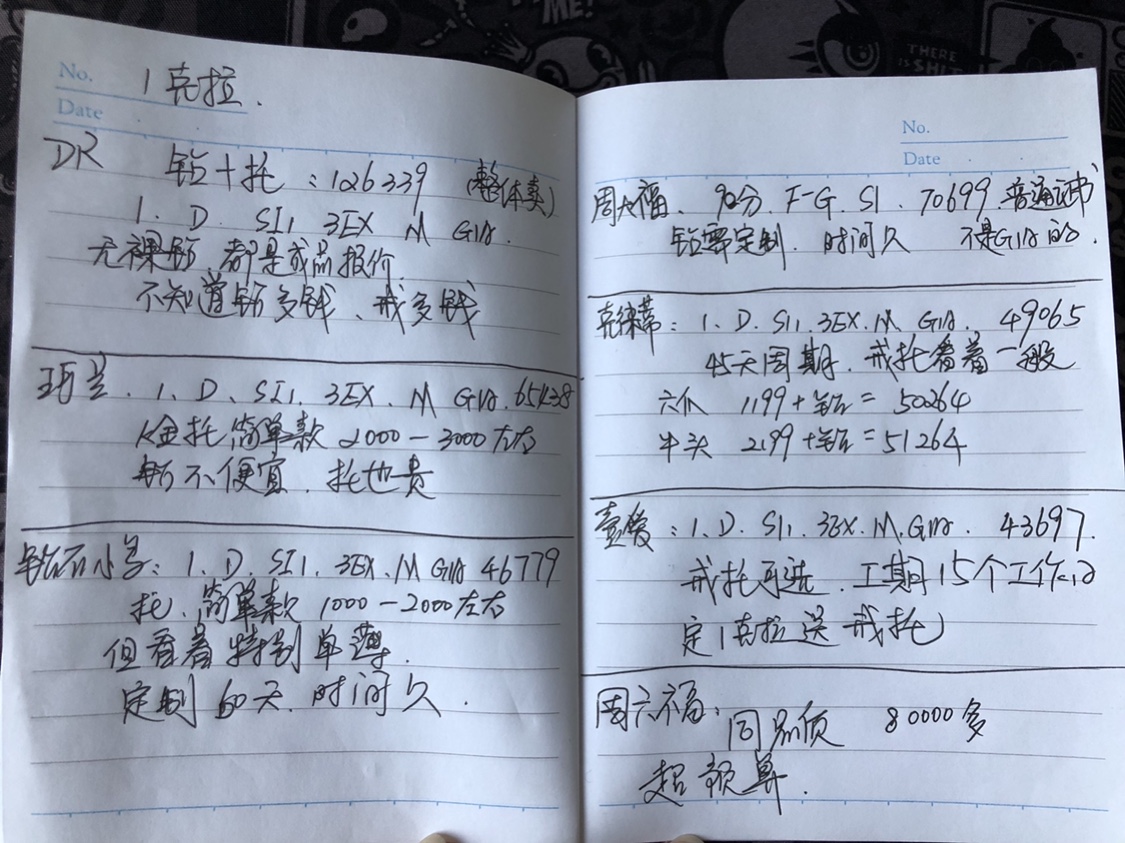 ME!
THERE
IS SHIT
No. 1克拉.
Date
DR 钻+托:126339 (整体卖)
1. D. SI1 3EX M GIA.
无裸钻、都是成品报价.
不知道钻多钱、戒多钱
珂兰. 1、D、SI1. 3EX. M GIA.65438
K金托简单款 2000-3000左右
钻不便宜.托也贵
钻石小鸟: 1、D. SI1. 3EX.M GIA 46779
托、简单款 1000-2000左右
但看着特别单薄.
定制60天.时间久.
No.
Date
周大福、90分.F-G.SI.70699.普通证书
钻需定制.时间久 不是GIA的.
克徕蒂:1、D.SI1.3EX.M. GIA. 49065
45天周期.戒托看着一般
六爪 1199+钻=50264
牛头 2199+钻=51264
壹爱:1.D.SI1.3EX.M.GIA. 43697.
戒托可选.工期15个工作日
定1克拉送戒托
周六福: 同级 80000多
超预算.